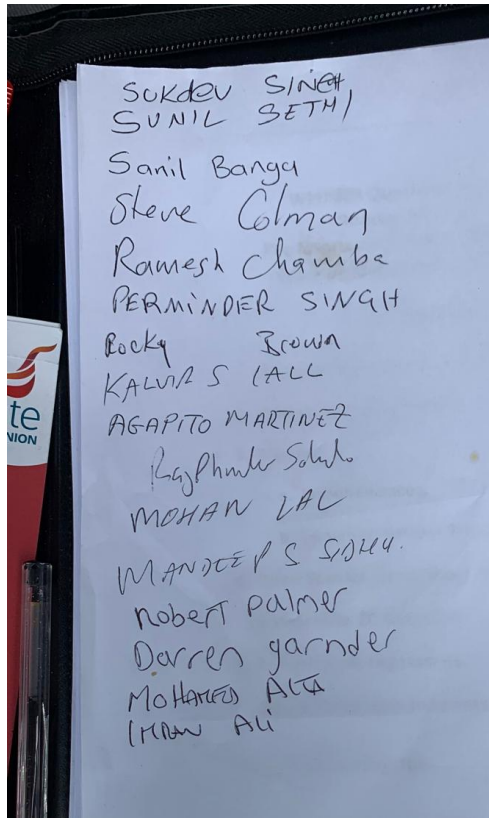 SUKdev SINGH
SUNIL SETHI
Sanil Banga
Steve Colman
Ramesh Chamba
PERMINDER SINGH
Rocky Brown
KALVIR S LALL
AGAPITO MARTINEZ
MOHAN LAL
MANDEEP S SIDHU.
Robert palmer
Darren garnder
MOHAMED
IMRAN Ali
te
NION